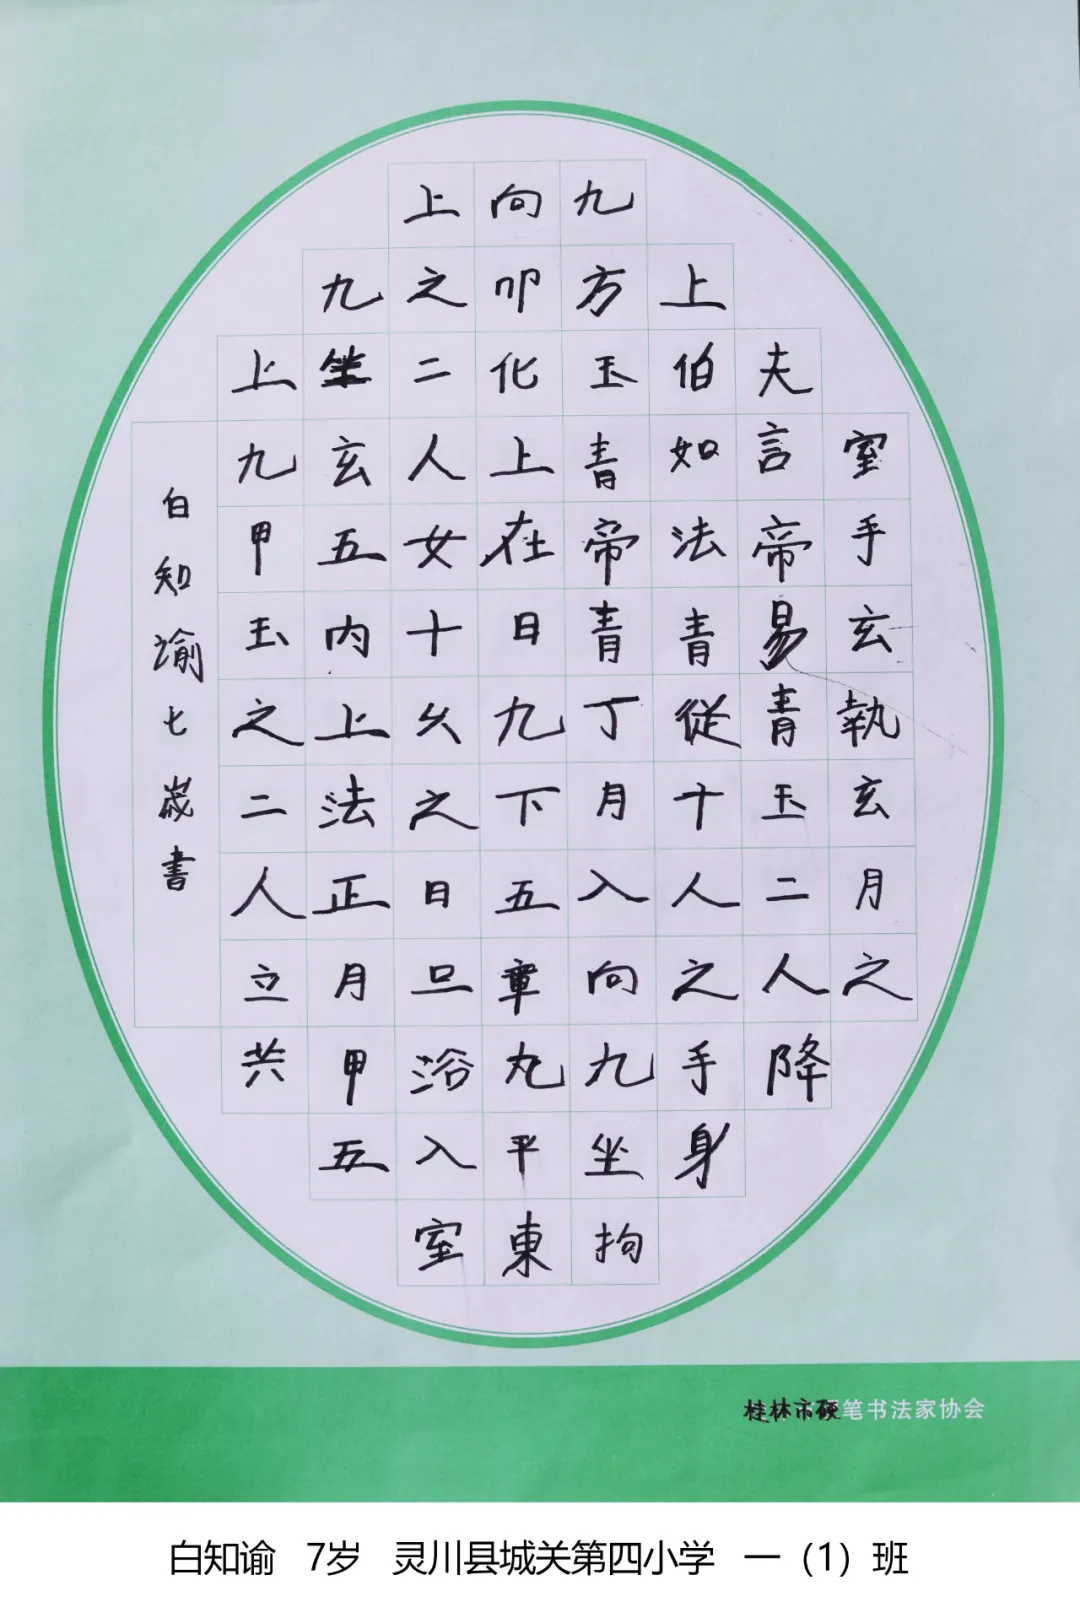 室手玄執玄月之
夫言帝易青玉二人降
上伯如法青從十人之手身
九方玉青帝青丁月入向九坐拘
向叩化上在日九下五章丸平東
上之二人女十久之日旦浴入室
九坐玄五内上法正月甲五
上九甲玉之二人立共
白知谕七歲書
桂林市硬笔书法家协会
白知谕 7岁 灵川县城关第四小学 一（1）班